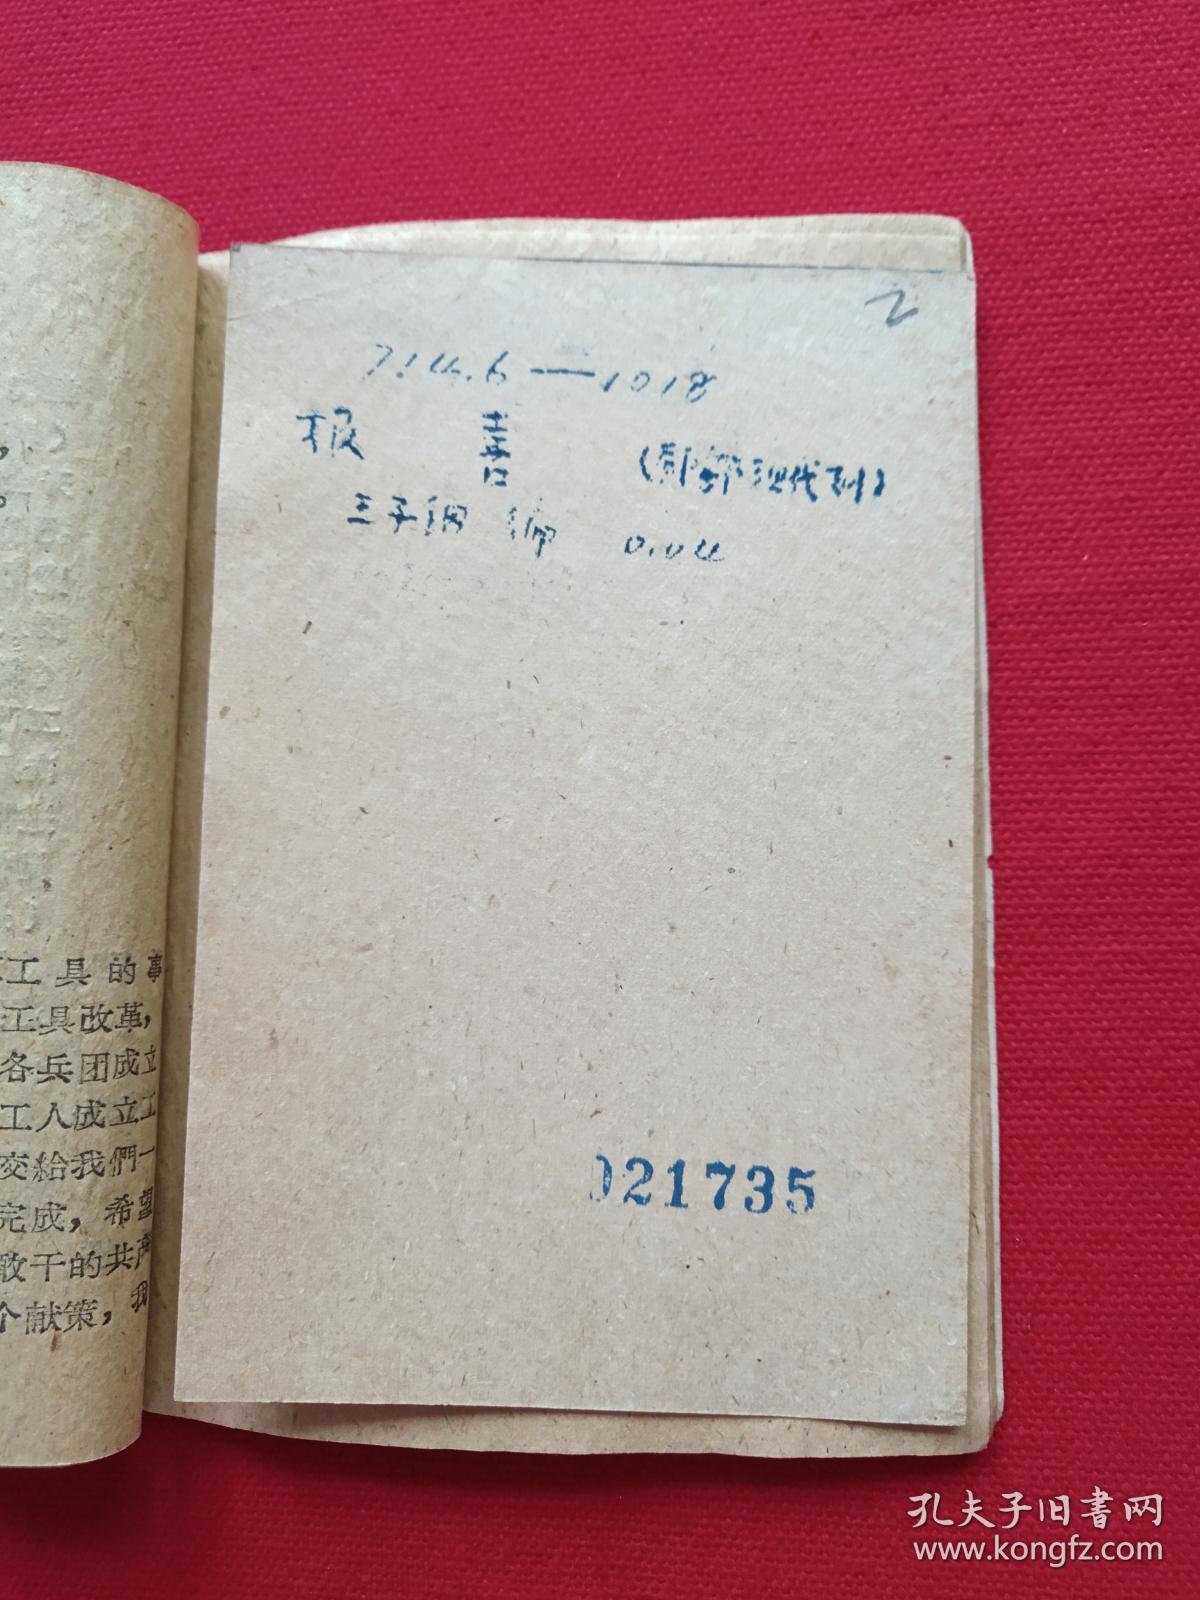 2
714.6—1018
报 喜 (郿鄠现代剧)
编 0.04
工具的事
工具改革,
各兵团成立
工人成立工
交給我們一
完成, 希望
敢干的共产
个献策, 我
021735
孔夫子旧书网
www.kongfz.com